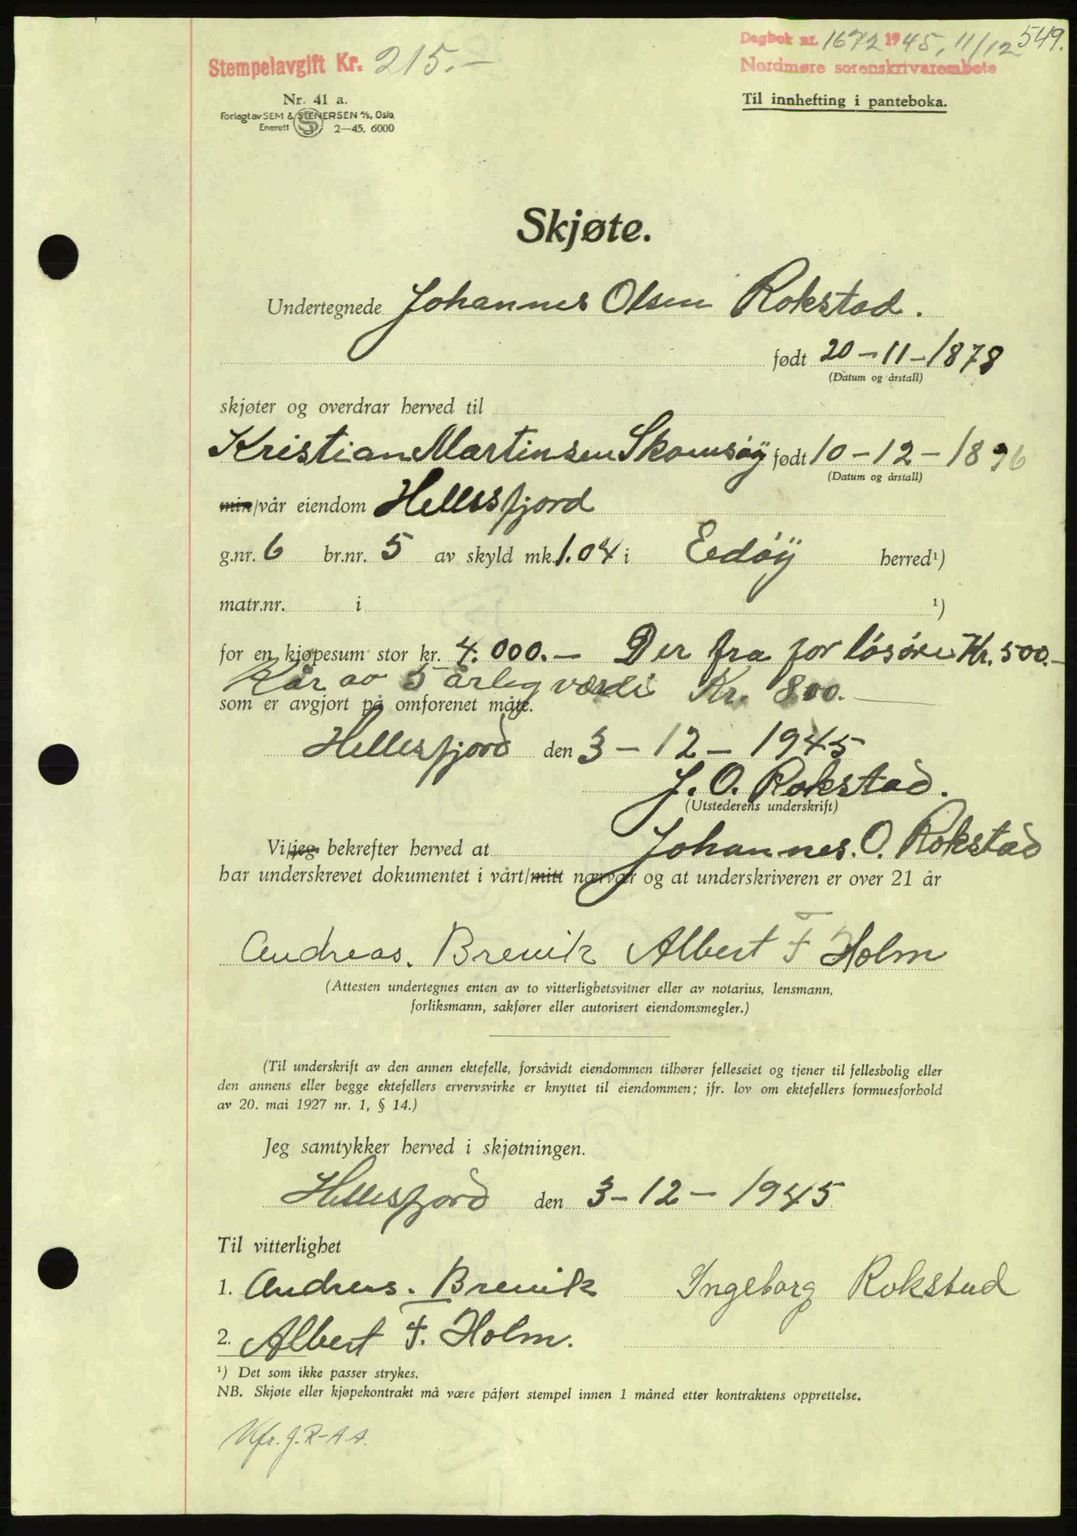 549.
Dagbok nr. 1672 1945, 11/12
Nordmøre sorenskrivarembete
Stempelavgift Kr. 215.-
Til innhefting i panteboka.
Nr. 41 a.
Forlagt av SEM & STENERSEN A/S, Oslo
Enerett S 2-45. 6000
Skjøte.
Undertegnede Johannes Olsen Rokstad.
født 20-11-1878
(Datum og årstall)
skjøter og overdrar herved til
Kristian Martinsen Skomsøy født 10-12-1896
(Datum og årstall)
min/vår eiendom Hellesfjord
g.nr. 6 br.nr. 5 av skyld mk. 1.04 i Edøy herred¹)
matr.nr. i ¹)
for en kjøpesum stor kr. 4.000.- Der fra for løsøre Kr. 500.-
Kår av 5 årleg værdi Kr. 800.-
som er avgjort på omforenet måte.
Hellesfjord den 3-12-1945
J. O. Rokstad.
(Utstederens underskrift)
Vi/jeg bekrefter herved at Johannes. O. Rokstad
har underskrevet dokumentet i vårt/mitt nærvær og at underskriveren er over 21 år
Andreas. Brevik Albert F Holm
(Attesten undertegnes enten av to vitterlighetsvitner eller av notarius, lensmann,
forliksmann, sakfører eller autorisert eiendomsmegler.)
(Til underskrift av den annen ektefelle, forsåvidt eiendommen tilhører felleseiet og tjener til fellesbolig eller
den annens eller begge ektefellers ervervsvirke er knyttet til eiendommen; jfr. lov om ektefellers formuesforhold
av 20. mai 1927 nr. 1, § 14.)
Jeg samtykker herved i skjøtningen.
Hellesfjord den 3-12-1945
Til vitterlighet
1. Andreas. Brevik Ingeborg Rokstad
2. Albert F. Holm.
¹) Det som ikke passer strykes.
NB. Skjøte eller kjøpekontrakt må være påført stempel innen 1 måned etter kontraktens opprettelse.